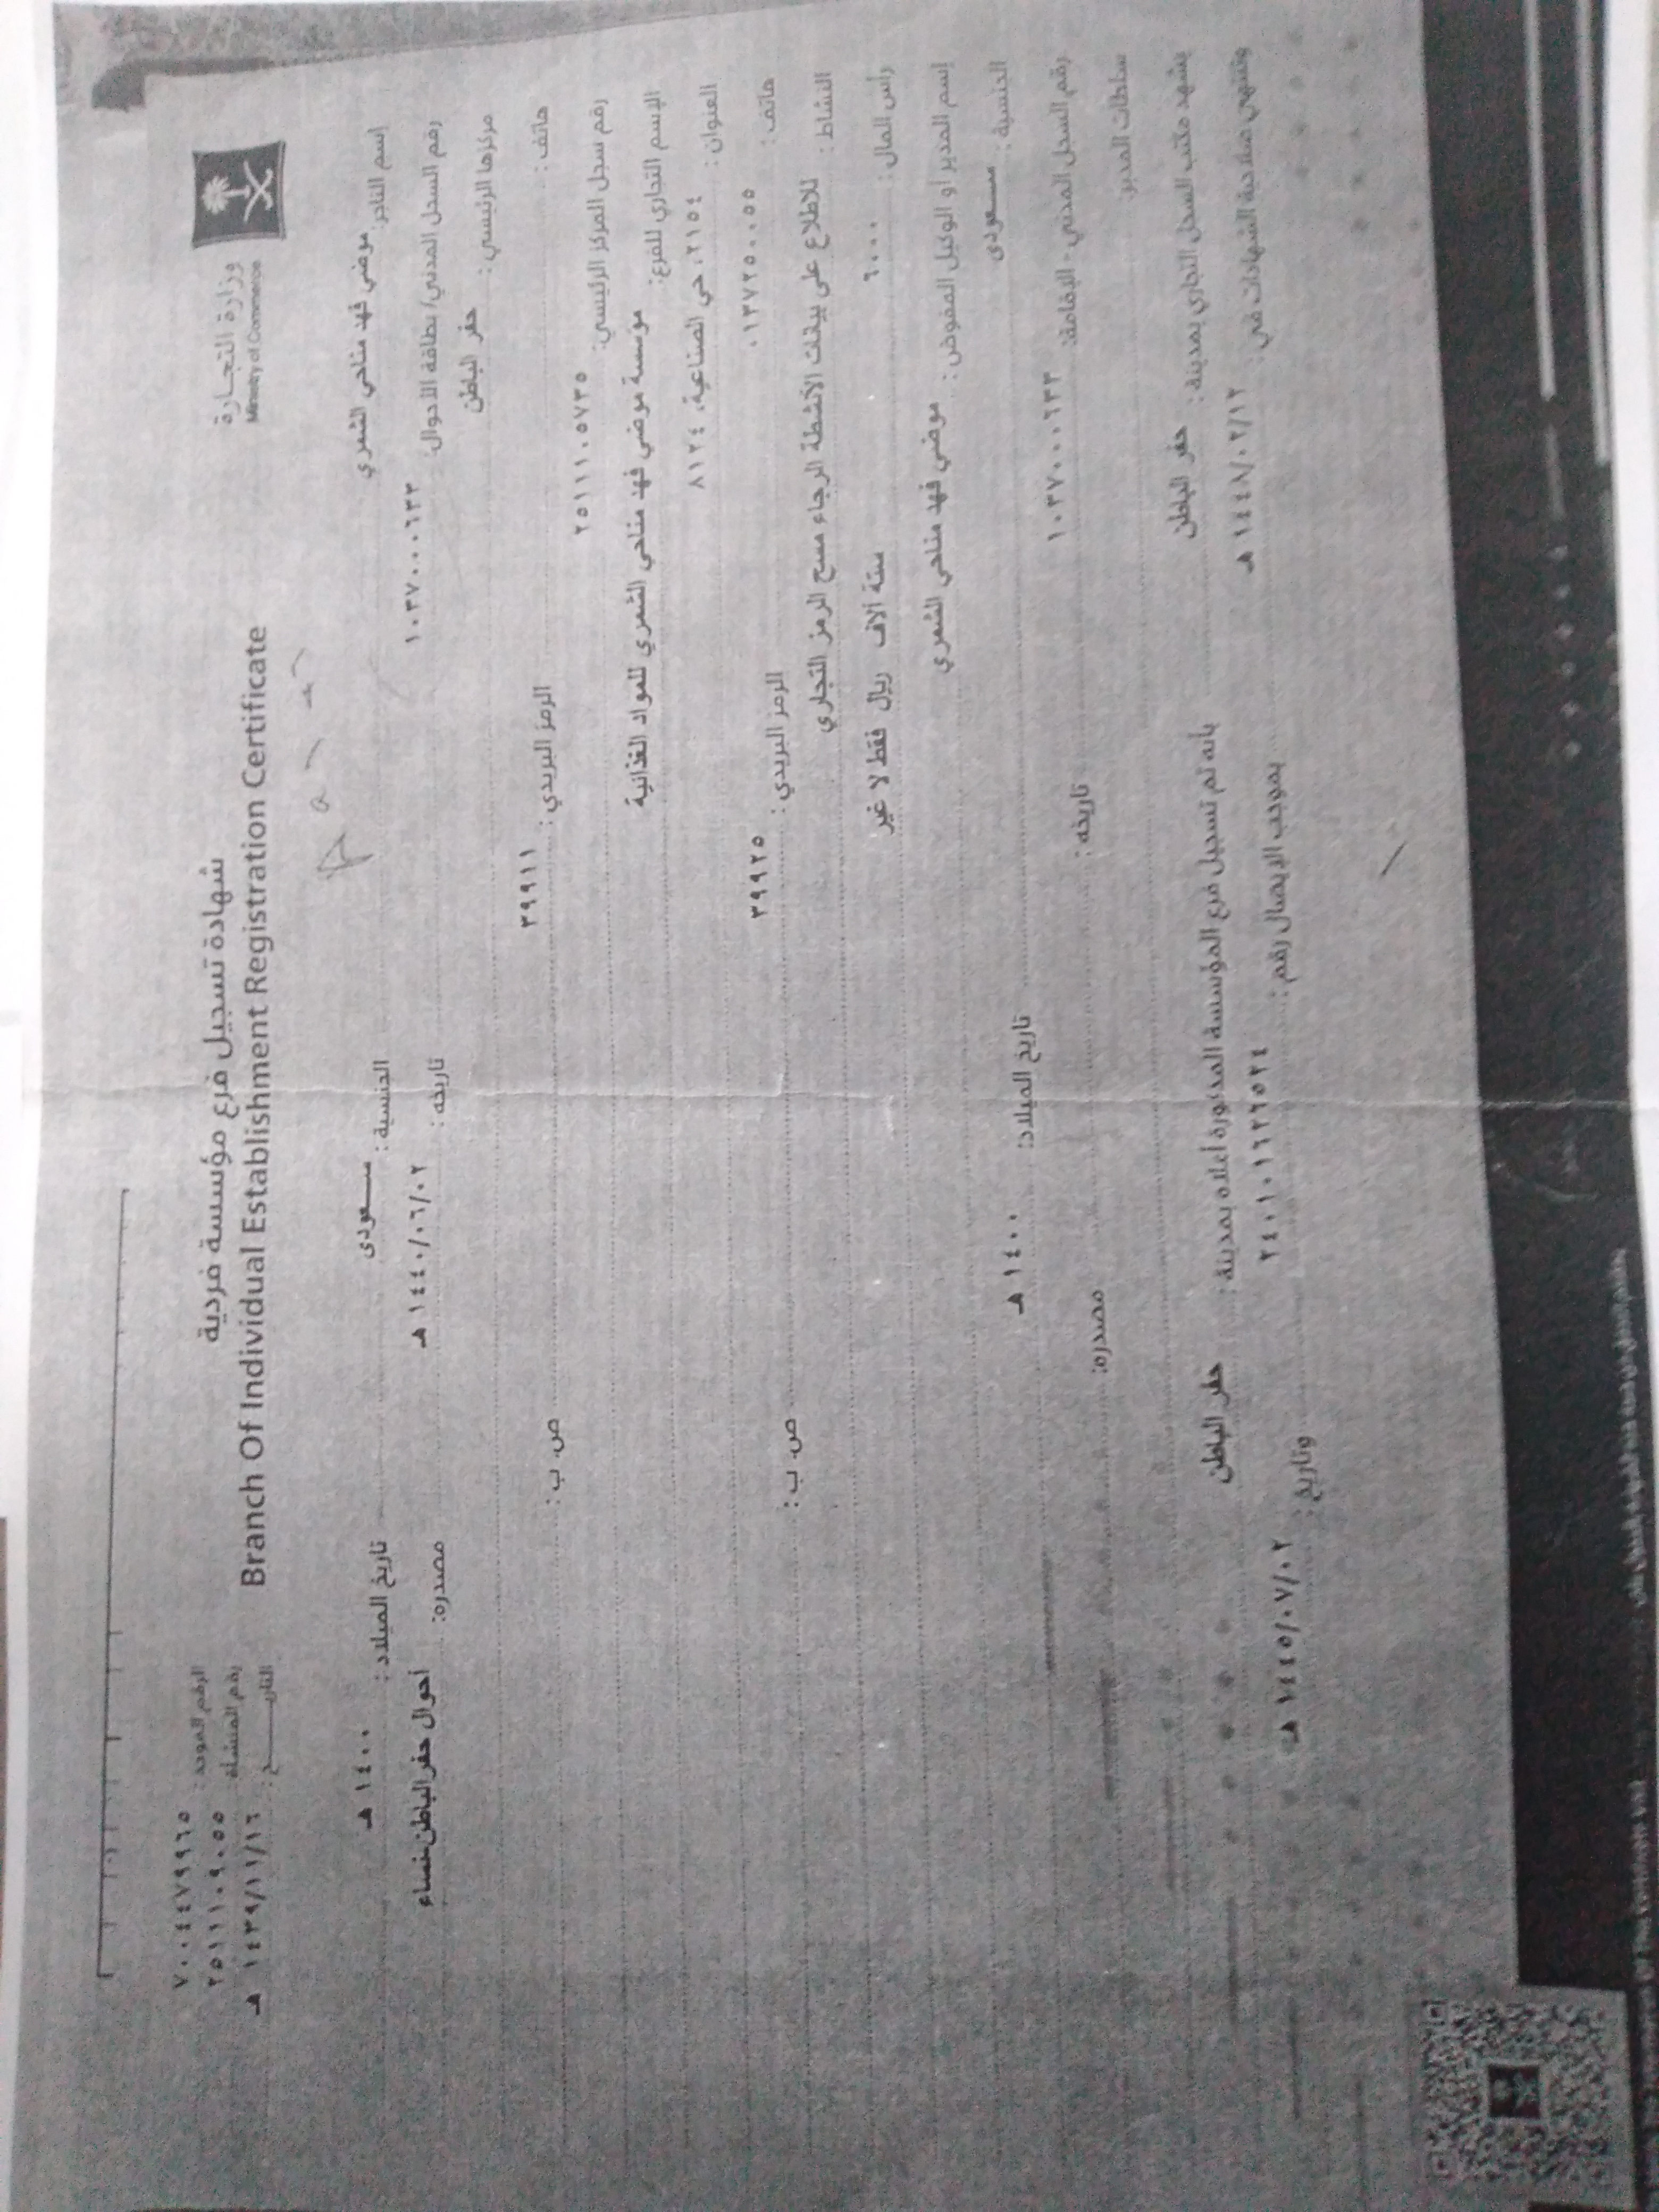 وزارة التجارة
Ministry of Commerce
شهادة تسجيل فرع مؤسسة فردية
Branch Of Individual Establishment Registration Certificate
الرقم الموحد : ٧٠٠٤٤٧٩٩٦٥
رقم المنشأة ٢٥١١١٠٩٠٥٥
التاريـــــخ : ١٤٣٩/١١/١٦ هـ
إسم التاجر: موضي فهد مناحي الشمري الجنسية : سعودى تاريخ الميلاد : ١٤٠٠ هـ
رقم السجل المدني/ بطاقة الأحوال: ١٠٣٧٠٠٠٦٣٣ تاريخه : ١٤٤٠/٠٦/٠٢ هـ مصدره: أحوال حفر الباطن-نساء
مركزها الرئيسي : حفر الباطن
هاتف : الرمز البريدي : ٣٩٩١١ ص. ب :
رقم سجل المركز الرئيسي: ٢٥١١١٠٥٧٣٥
الإسم التجاري للفرع: مؤسسة موضي فهد مناحي الشمري للمواد الغذائية
العنوان : ٢١٥٤، حي الصناعية، ٨١٢٤
هاتف : ٠١٣٧٢٥٠٠٥٥ الرمز البريدي : ٣٩٩٢٥ ص. ب :
النشاط : للاطلاع على بيانات الأنشطة الرجاء مسح الرمز التجاري
راس المال : ٦٠٠٠ ستة آلاف ريال فقط لا غير
إسم المدير او الوكيل المفوض : موضي فهد مناحي الشمري
الجنسية : سعودى تاريخ الميلاد: ١٤٠٠ هـ
رقم السجل المدني - الإقامة: ١٠٣٧٠٠٠٦٣٣ تاريخه : مصدره:
سلطات المدير:
يشهد مكتب السجل التجاري بمدينة : حفر الباطن بانه تم تسجيل فرع المؤسسة المذكورة أعلاه بمدينة : حفر الباطن
وتنتهي صلاحية الشهادات في : ١٤٤٨/٠٢/١٢ هـ بموجب الإيصال رقم : ٢٤٠١٠١٦٢٦٥٢٤ وتاريخ : ١٤٤٥/٠٧/٠٢ هـ